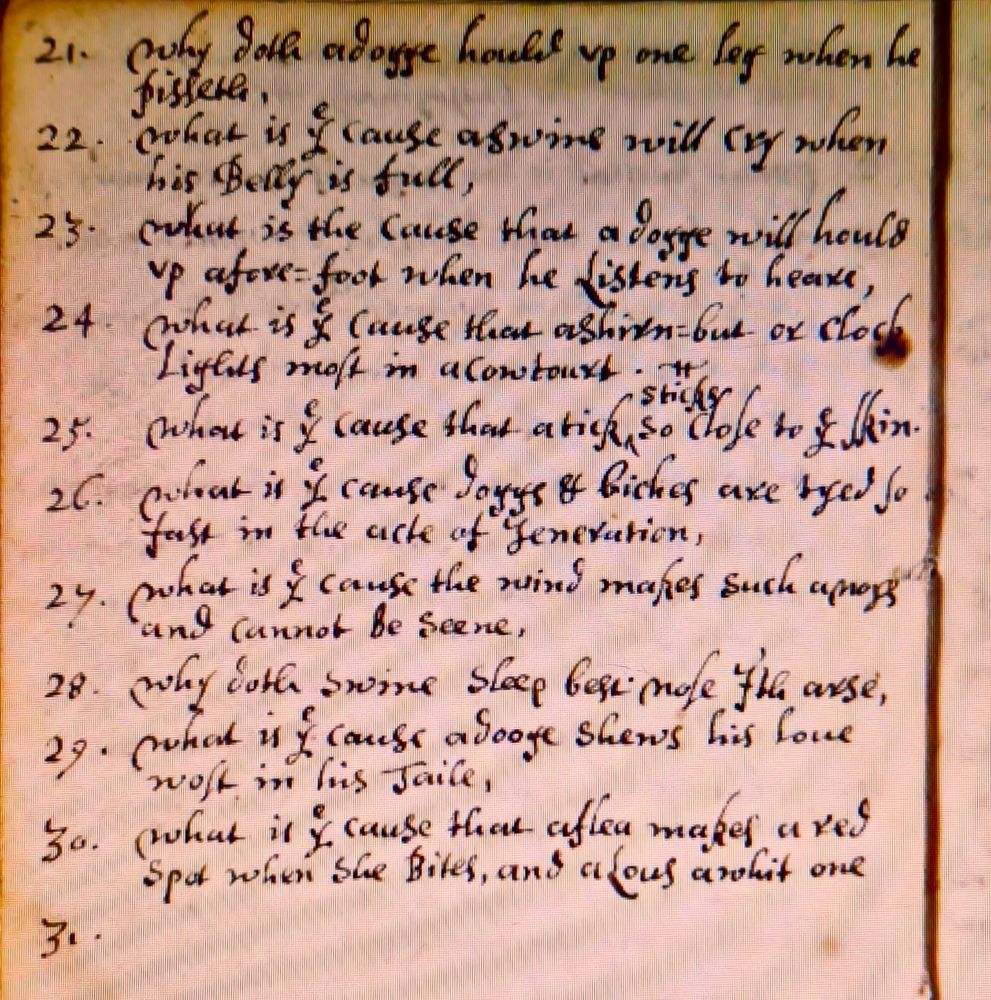 21. why doth adogge hould vp one leg when he
pisseth,
22. what is ye cause aswine will Cry when
his Belly is full,
23. what is the Cause that adogge will hould
vp afore=foot when he Listens to heare,
24. what is ye Cause that
Lights most in a
sticks
25. what is ye cause that atick ^ so Close to ye skin.
26. what is ye cause doggs & biches are tyed so
fast in the acte of Generation,
27. what is ye cause the wind makes such anoys
and Cannot Be Seene,
28. why doth swine Sleep best nose arse,
29. what is ye cause adooge Shews his loue
most in his Taile,
30. what is ye cause that aflea makes a red
Spot when She Bites, and aLous awhit one
31.